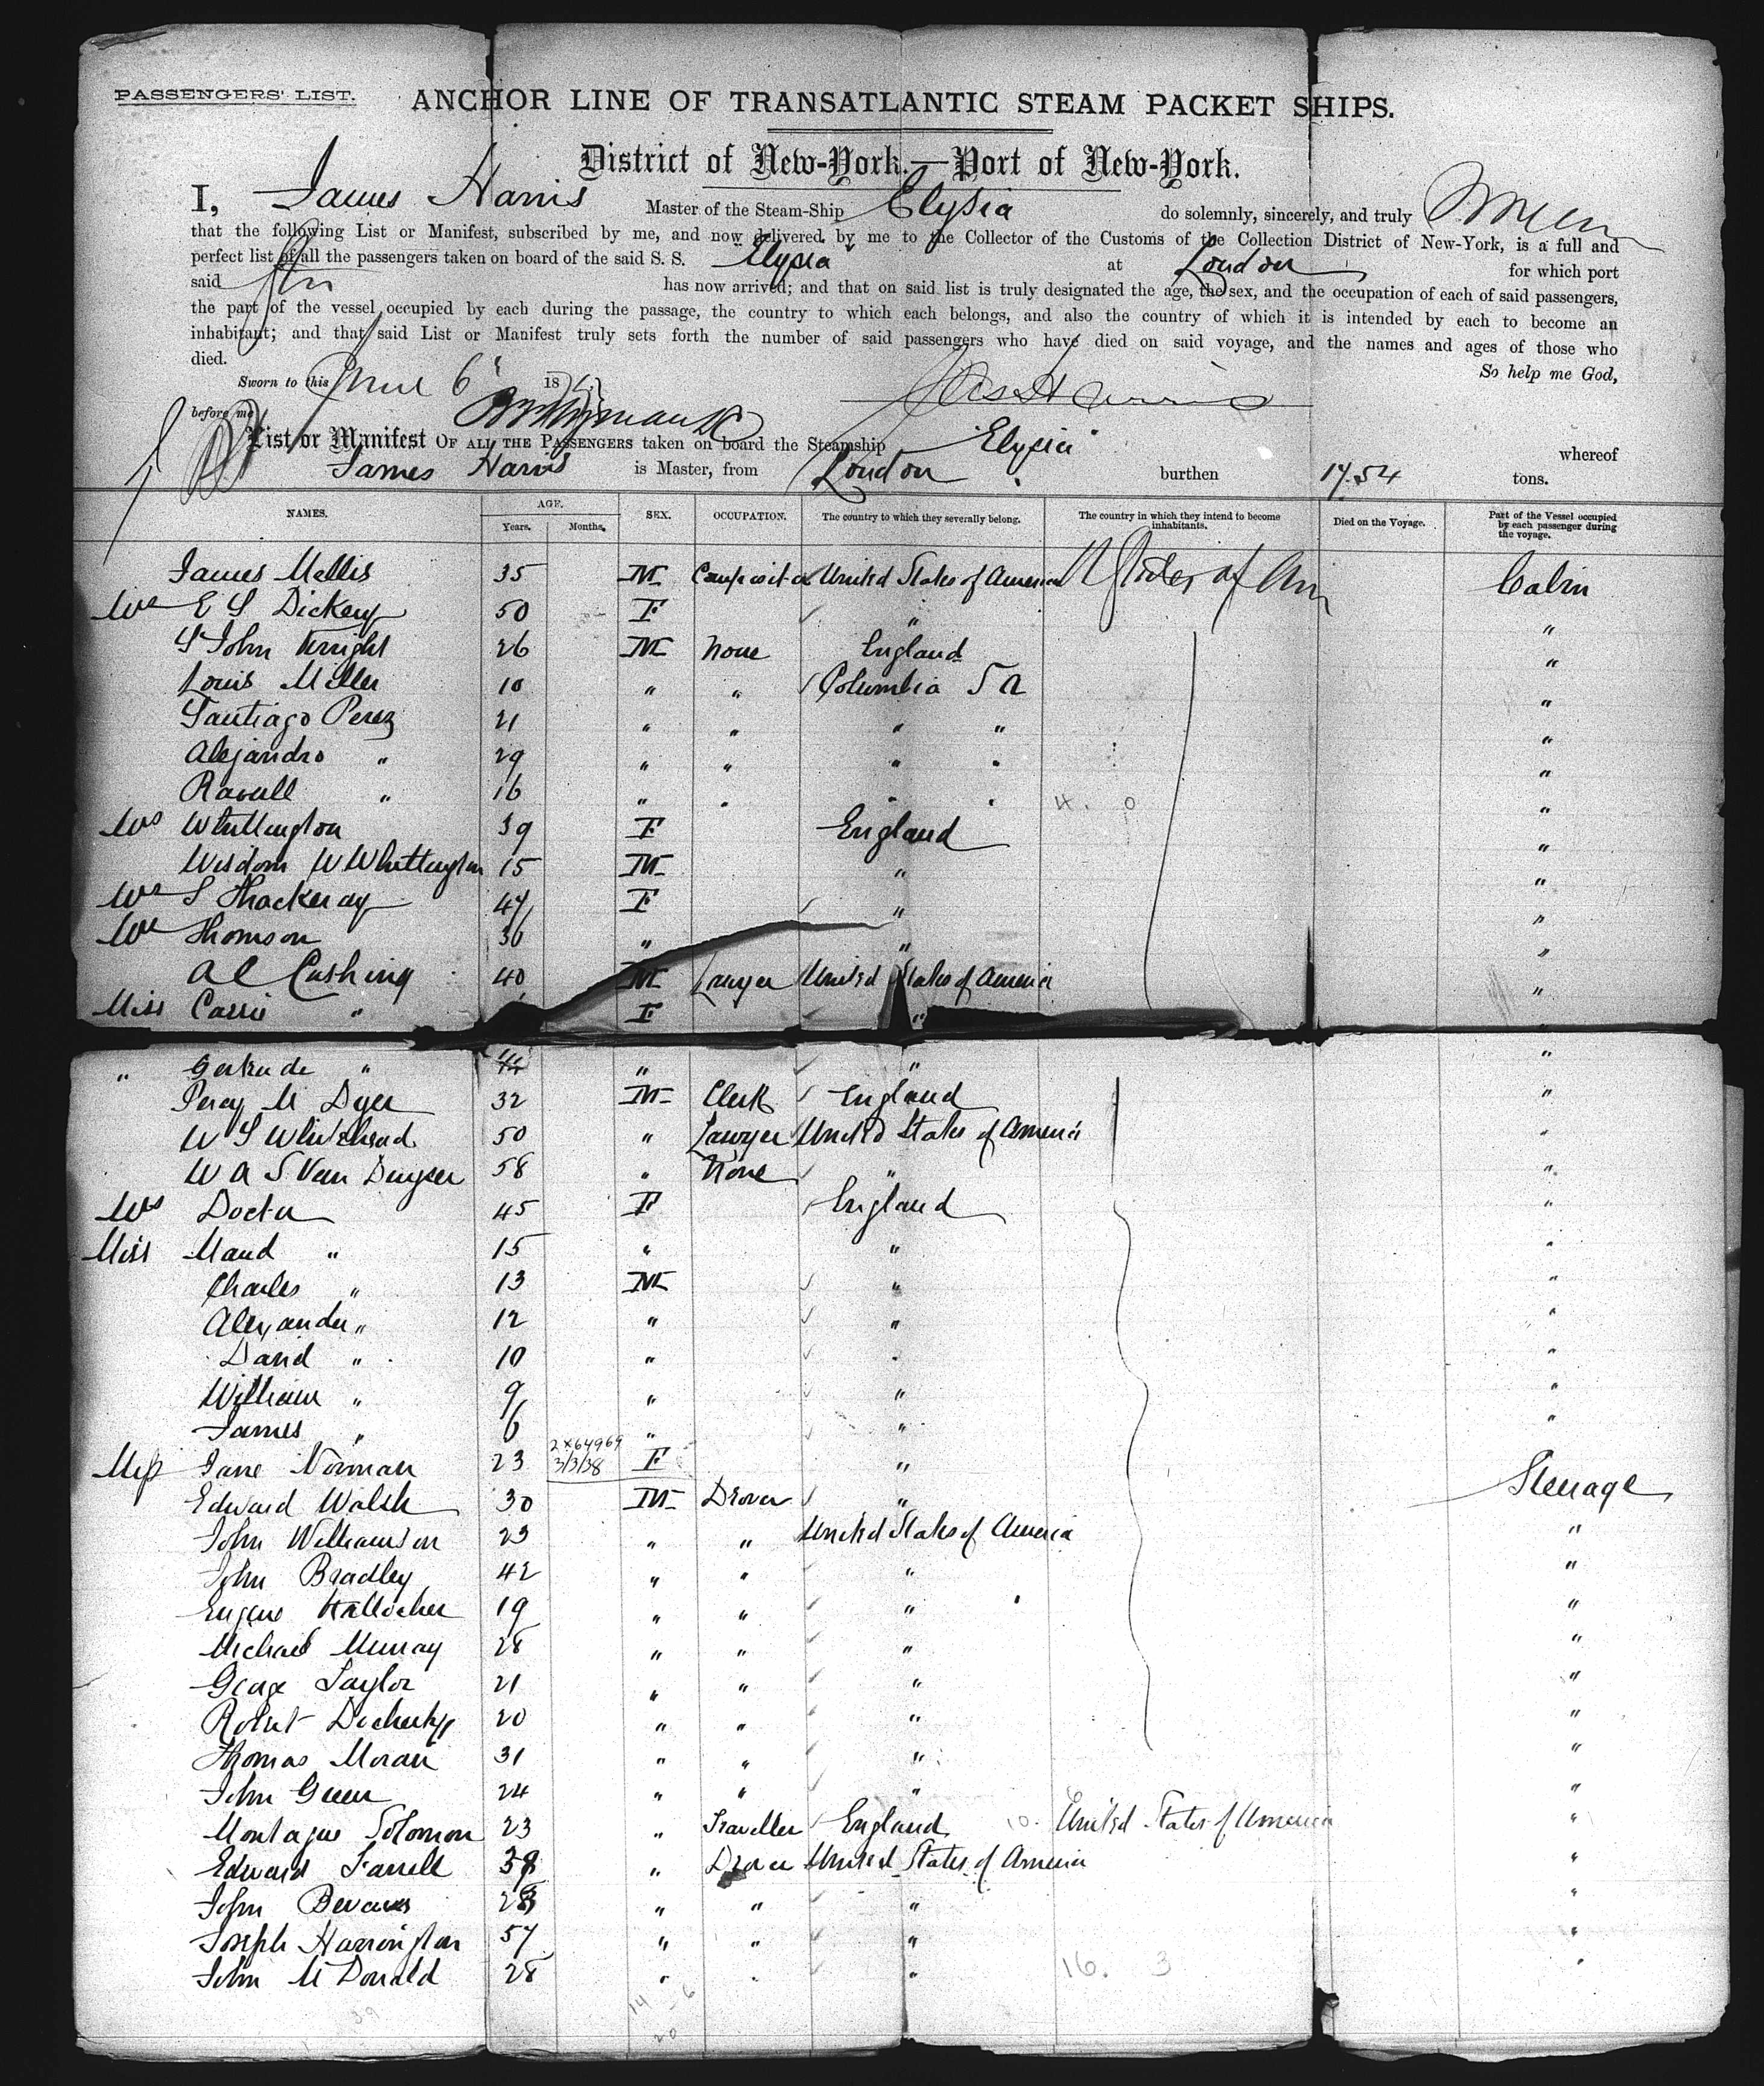 PASSENGERS' LIST. ANCHOR LINE OF TRANSATLANTIC STEAM PACKET SHIPS.
District of New-York.—Port of New-York.
I, James Harris Master of the Steam-Ship Elysia do solemnly, sincerely, and truly
that the following List or Manifest, subscribed by me, and now delivered by me to the Collector of the Customs of the Collection District of New-York, is a full and
perfect list of all the passengers taken on board of the said S. S. "Elysia" at London for which port
said has now arrived; and that on said list is truly designated the age, the sex, and the occupation of each of said passengers,
the part of the vessel occupied by each during the passage, the country to which each belongs, and also the country of which it is intended by each to become an
inhabitant; and that said List or Manifest truly sets forth the number of said passengers who have died on said voyage, and the names and ages of those who
died. So help me God,
Sworn to this June 6 18 Jas Harris
before me
List or Manifest OF ALL THE PASSENGERS taken on board the Steamship "Elysia" whereof
James Harris is Master, from London burthen 17.54 tons.
NAMES. AGE. Years. Months. SEX. OCCUPATION. The country to which they severally belong. The country in which they intend to become inhabitants. Died on the Voyage. Part of the Vessel occupied by each passenger during the voyage.
James Mellis 35 M Compositor United States of America U States of Am Cabin
Mrs E S Dickey 50 F " "
St John Knight 26 M None England "
Louis Miller 10 " " Columbia S A "
Santiago Perez 21 " " " " "
Alejandro " 29 " " " " "
Raoull " 16 " " " " "
Mrs Whittington 39 F England "
Wisdom W Whittington 15 M " "
Mrs S Thackeray 47 F " "
Mrs Thomson 36 " " "
A C Cushing 40 M Lawyer United States of America "
Miss Carrie " F " "
" Gertrude " " " "
Percy M Dyer 32 M Clerk England "
W S Whitehead 50 " Lawyer United States of America "
W A S Van Duyser 58 " None " "
Mrs Docter 45 F England "
Miss Maud " 15 " " "
Charles " 13 M " "
Alexander " 12 " " "
David " 10 " " "
William " 9 " " "
James " 6 " " "
2X64969
Miss Jane Norman 23 3/3/38 F "
Edward Walsh 30 M Drover " Steerage
John Williamson 23 " " United States of America "
John Bradley 42 " " " "
Eugene 19 " " " "
Michael Murray 28 " " " "
George Taylor 21 " " " "
Robert Docherty 20 " " " "
Thomas Moran 31 " " " "
John Green 24 " " " "
Montague Solomon 23 " Traveller England 10. United States of America "
Edward Farrell " Drover United States of America "
John Bevans " " " "
Joseph Harrington 57 " " " "
John McDonald 28 " " " "
16. 3
39 14 - 6
20